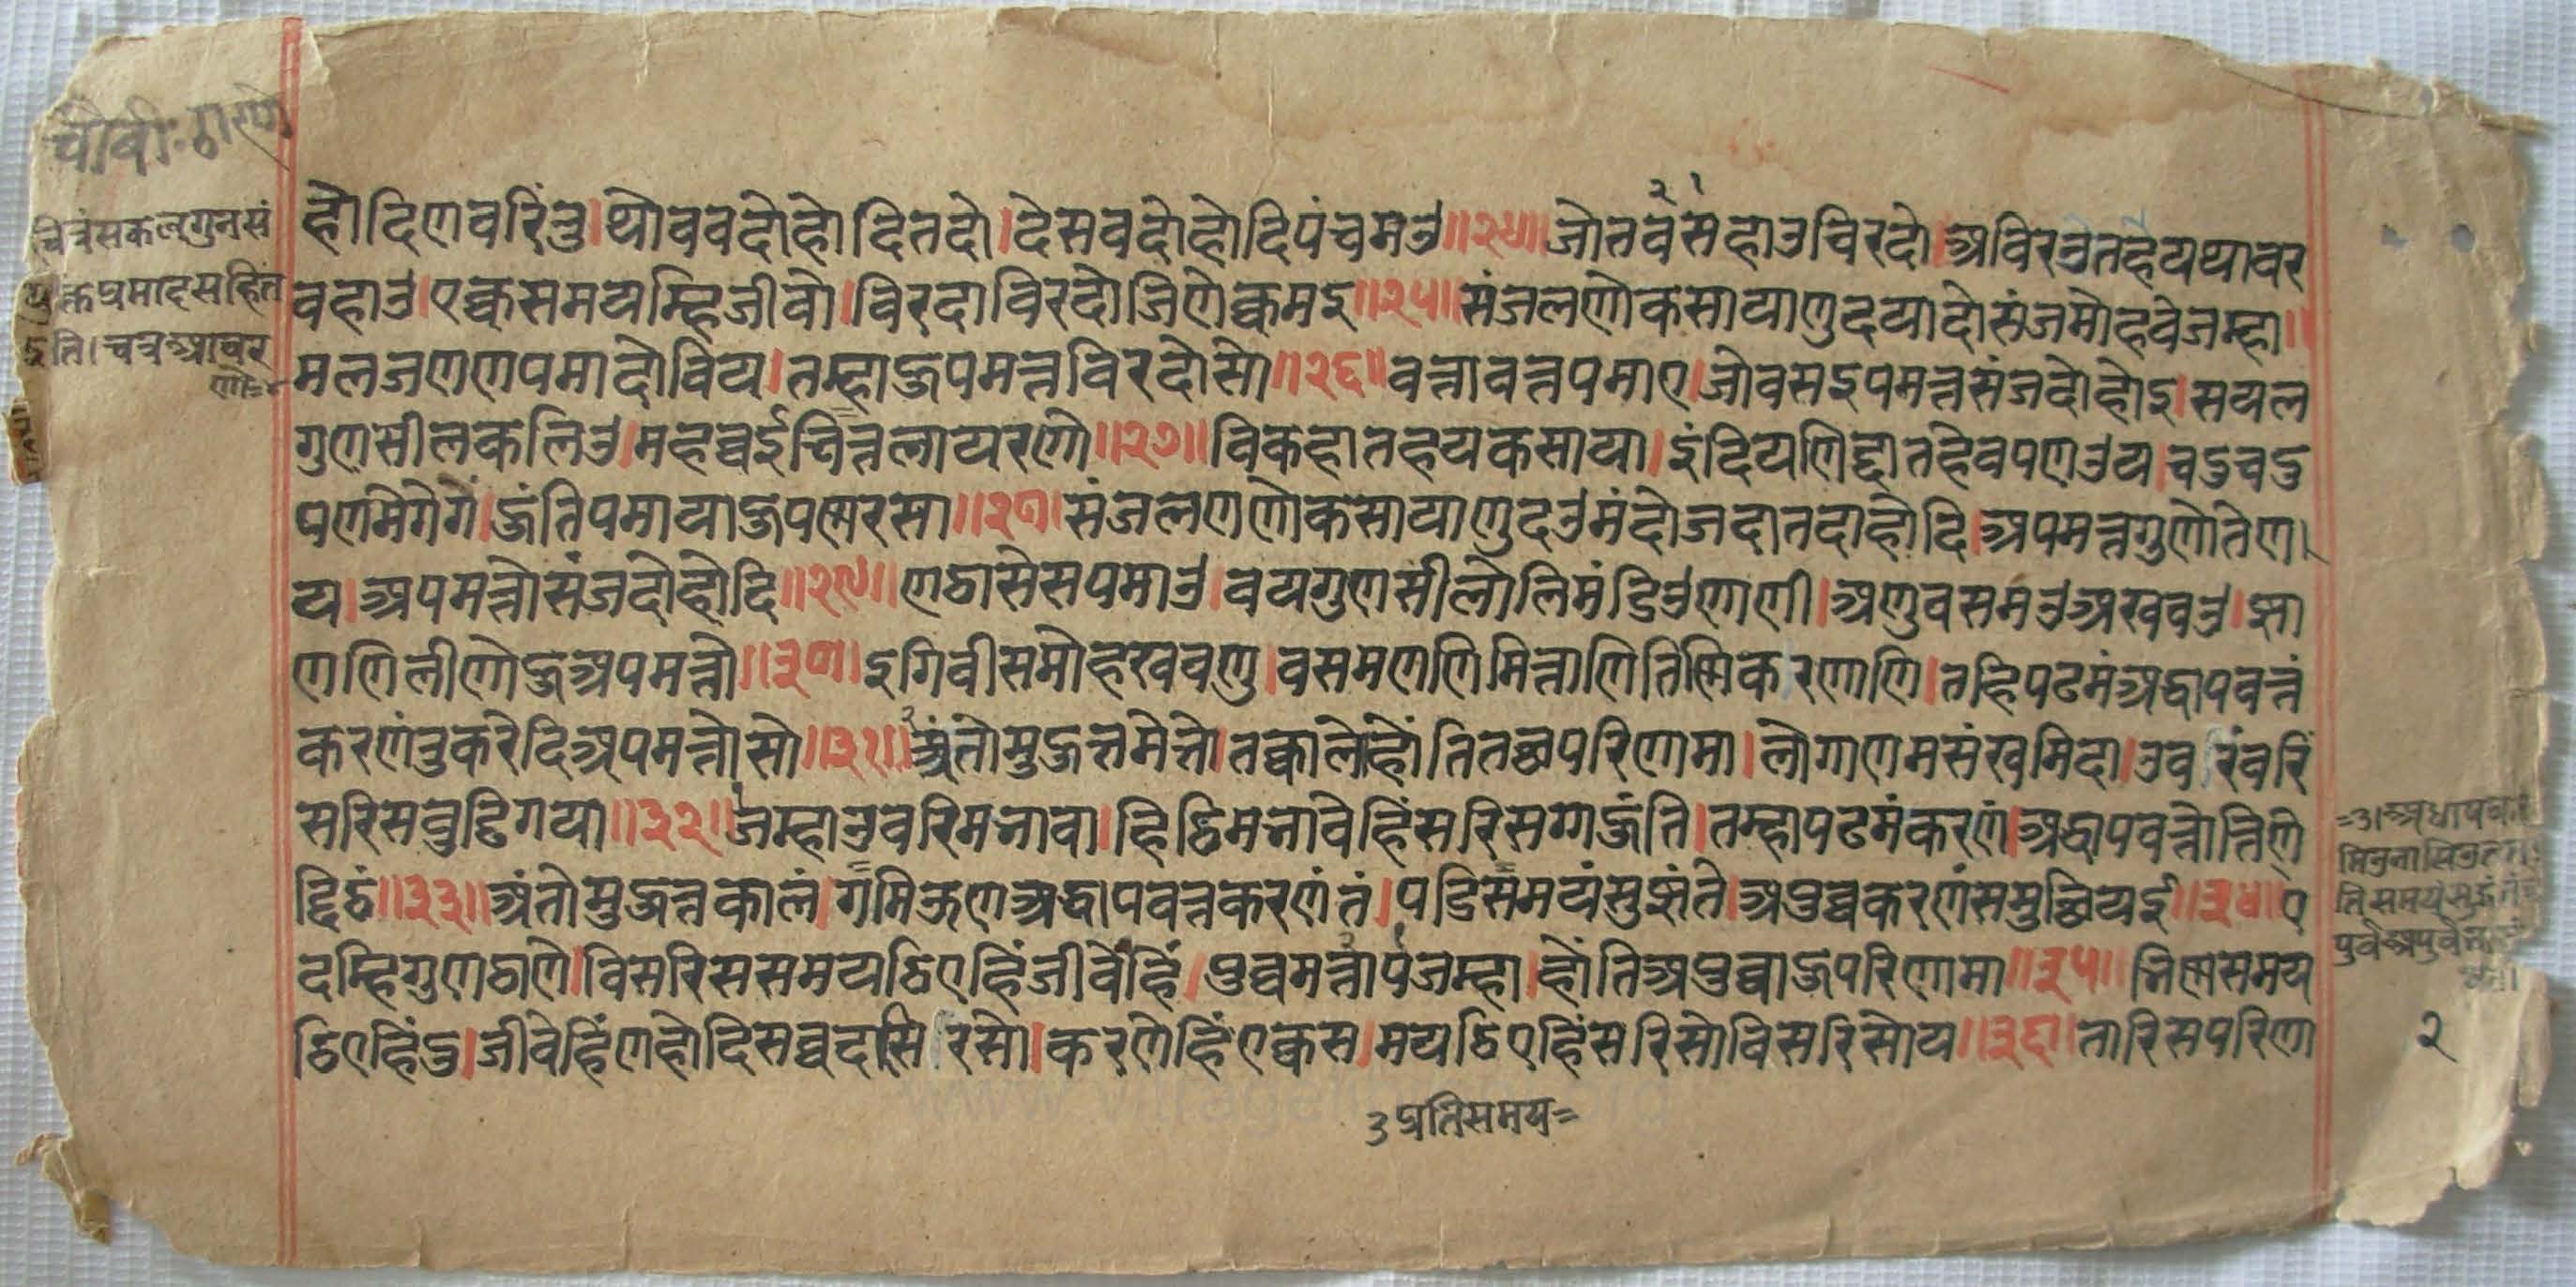 चौवी-ठाणो
चित्रंसकलगुनसं
युक्तप्रमादसहित
इति।चत्रआवर
णो=४
होदिणवरिंतु।थोववदोहोदितदो।देसवदोहोदिपंचमउ॥२४॥जोतवसहाउविरदो।अविरउतहयथावर
वहाउ।एक्कसमयम्हिजीवो।विरदाविरदोजिणेक्कमइ॥२५॥संजलणोकसायाणुदयादोसंजमोहवेजम्हा॥
मलजणणपमादोविय।तम्हाहुपमत्तविरदोसो॥२६॥वत्तावत्तपमाए।जोवसइपमत्तसंजदोहोइ।सयल
गुणसीलकलिउ।महव्वईचित्तलायरणो॥२७॥विकहातहयकसाया।इंदियणिद्दातहेवपणउय।चउचउ
पणमेगेगं।हुंतिपमायाहुपण्णरसा॥२८॥संजलणणोकसायाणुदउमंदोजदातदाहोदि।अपमत्तगुणोतेण।
य।अपमत्तोसंजदोहोदि॥२९॥णठासेसपमाउ।वयगुणसीलोलिमंडिउणाणी।अणुवसमउअखवउ।झा
णणिलीणोहुअपमत्तो॥३०॥इगिवीसमोहखवणु।वसमणणिमित्ताणितिण्णिकरणाणि।तहिपढमंअद्धापवत्तं
करणंतुकरेदिअपमत्तोसो॥३१॥अंतोमुहुत्तमेत्तो।तक्कालेहोंतितच्छपरिणामा।लोगाणमसंखमिदा।उवरंवरिं
सरिसवुढिगया॥३२॥जम्हाउवरिमभावा।हिठिमभावेहिंसरिसगाहुंति।तम्हापढमंकरणं।अद्धापवत्तोत्तिणि
द्दिठं॥३३॥अंतोमुहुत्तकालं।गमिऊणअद्धापवत्तकरणंतं।पडिसमयंसुझंते।अपुव्वकरणंसमुछियई॥३४॥ए
दम्हिगुणठाणे।विसरिससमयठिएहिंजीवेहिं।पुव्वमत्तापजम्हा।होंतिअपुव्वाहुपरिणामा॥३५॥भिण्णसमय
ठिएहिंउ।जीवेहिंणहोदिसव्वदासिरसो।करणेहिंएक्कस।मयठिएहिंसरिसोविसरिसोय॥३६॥तारिसपरिणा
२
३प्रतिसमय=